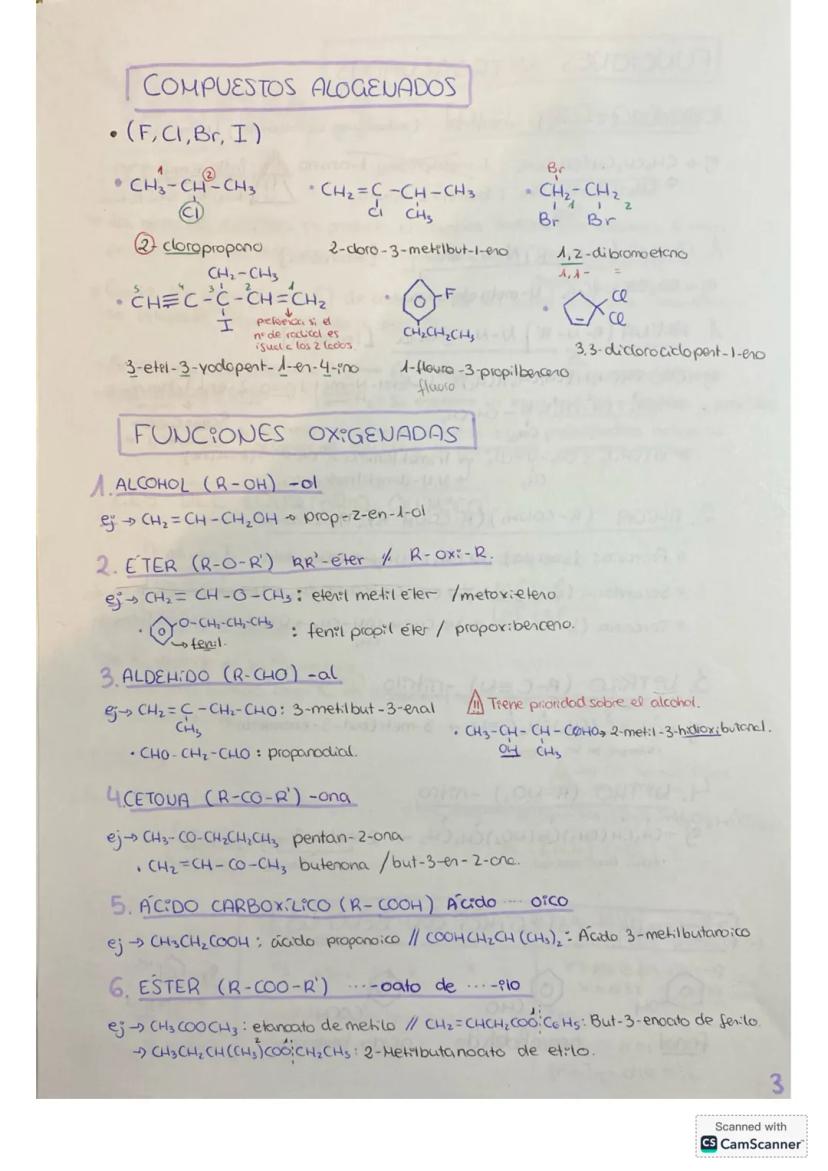 COMPUESTOS ALOGENADOS
• (F, Cl, Br, I)
• CH₃-CH-CH₃
1 2
Cl
② cloropropano
• CH₂=C-CH-CH₃
Cl CH₃
2-cloro-3-metilbut-1-eno
Br
• CH₂-CH₂
1 2
Br Br
1,2-dibromoetano
1,1- =
CH₂-CH₃
• CH≡C-C-CH=CH₂
5 4 3 2 1
I
preferencia si el
nº de radical es
igual a los 2 lados.
3-etil-3-yodopent-1-en-4-ino
F
CH₂CH₂CH₃
1-flouro-3-propilbenceno
fluoro
Cl
Cl
3,3-diclorociclopent-1-eno
FUNCIONES OXIGENADAS
1. ALCOHOL (R-OH) -ol
ej → CH₂=CH-CH₂OH → prop-2-en-1-ol
2. ÉTER (R-O-R') RR'-éter // R-oxi-R.
ej → CH₂=CH-O-CH₃: etenil metil éter / metoxieteno
• O-CH₂-CH₂-CH₃ : fenil propil éter / propoxibenceno.
→ fenil.
3. ALDEHIDO (R-CHO) -al
ej → CH₂=C-CH₂-CHO: 3-metilbut-3-enal
CH₃
• CHO-CH₂-CHO: propanodial.
!! Tiene prioridad sobre el alcohol.
• CH₃-CH-CH-COHO→ 2-metil-3-hidroxibutanal.
OH CH₃
4. CETONA (R-CO-R') -ona
ej → CH₃-CO-CH₂CH₂CH₃ pentan-2-ona
• CH₂=CH-CO-CH₃ butenona / but-3-en-2-ona.
5. ÁCIDO CARBOXÍLICO (R-COOH) Ácido ... oico
ej → CH₃CH₂COOH: ácido propanoico // COOHCH₂CH(CH₃)₂: Ácido 3-metilbutanoico
6. ÉSTER (R-COO-R') ...-oato de ...-ilo
ej → CH₃COOCH₃: etanoato de metilo // CH₂=CHCH₂COO¦C₆H₅: But-3-enoato de fenilo.
→ CH₃CH₂CH(CH₃)COO¦CH₂CH₃: 2-Metilbutanoato de etilo.
3
Scanned with
CS CamScanner